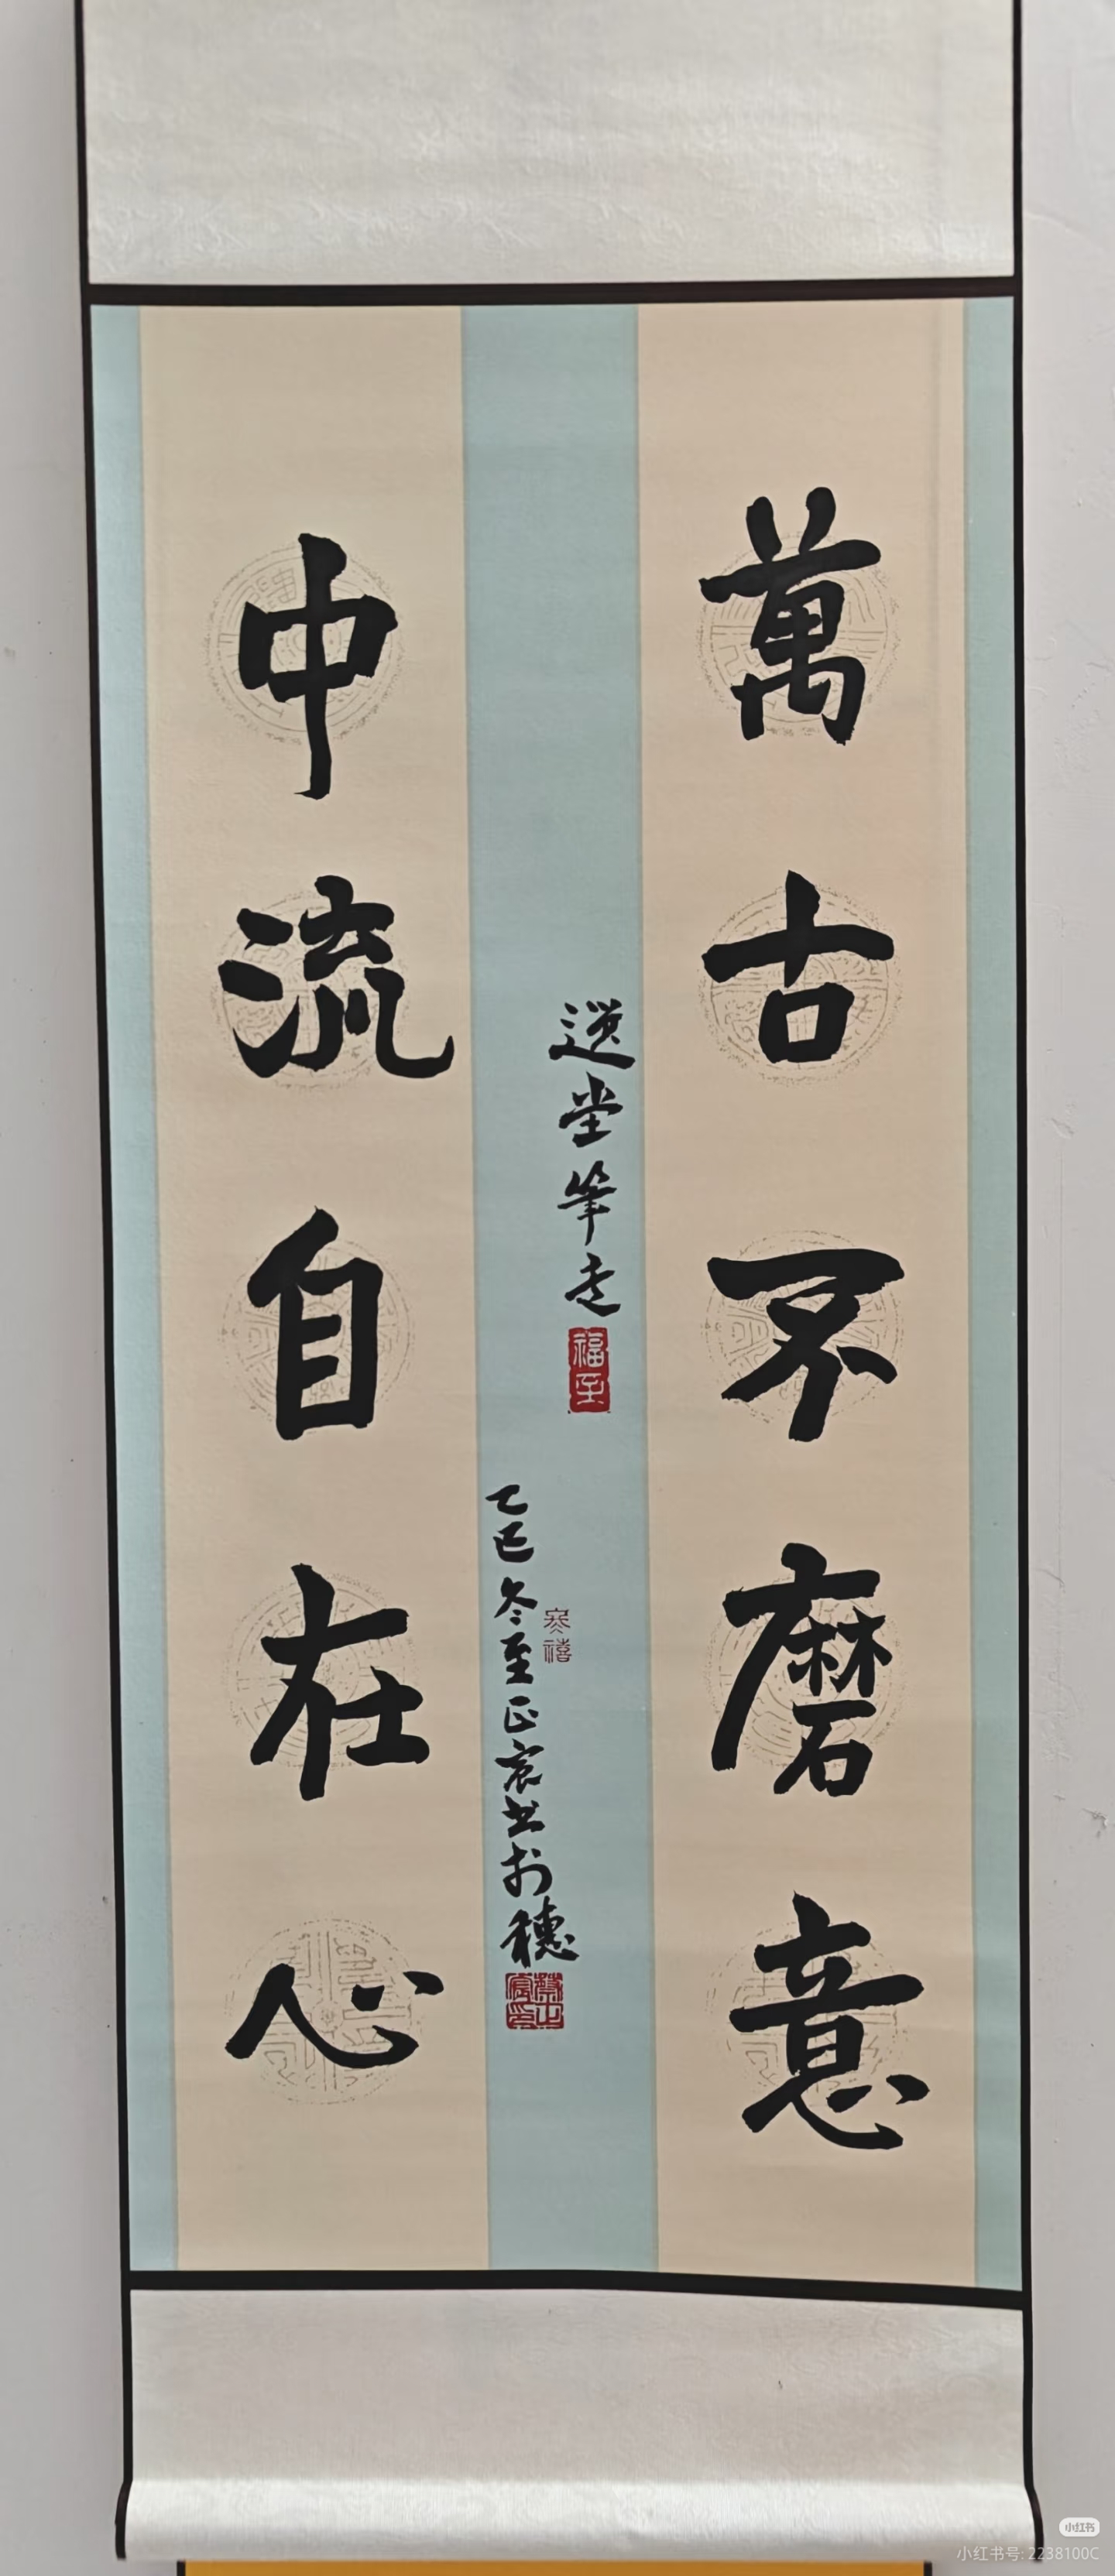 萬古不磨意
中流自在心
選堂筆意
福至
乙巳冬至正宸书於穗
寒禧
小红书
小红书号: 2238100C